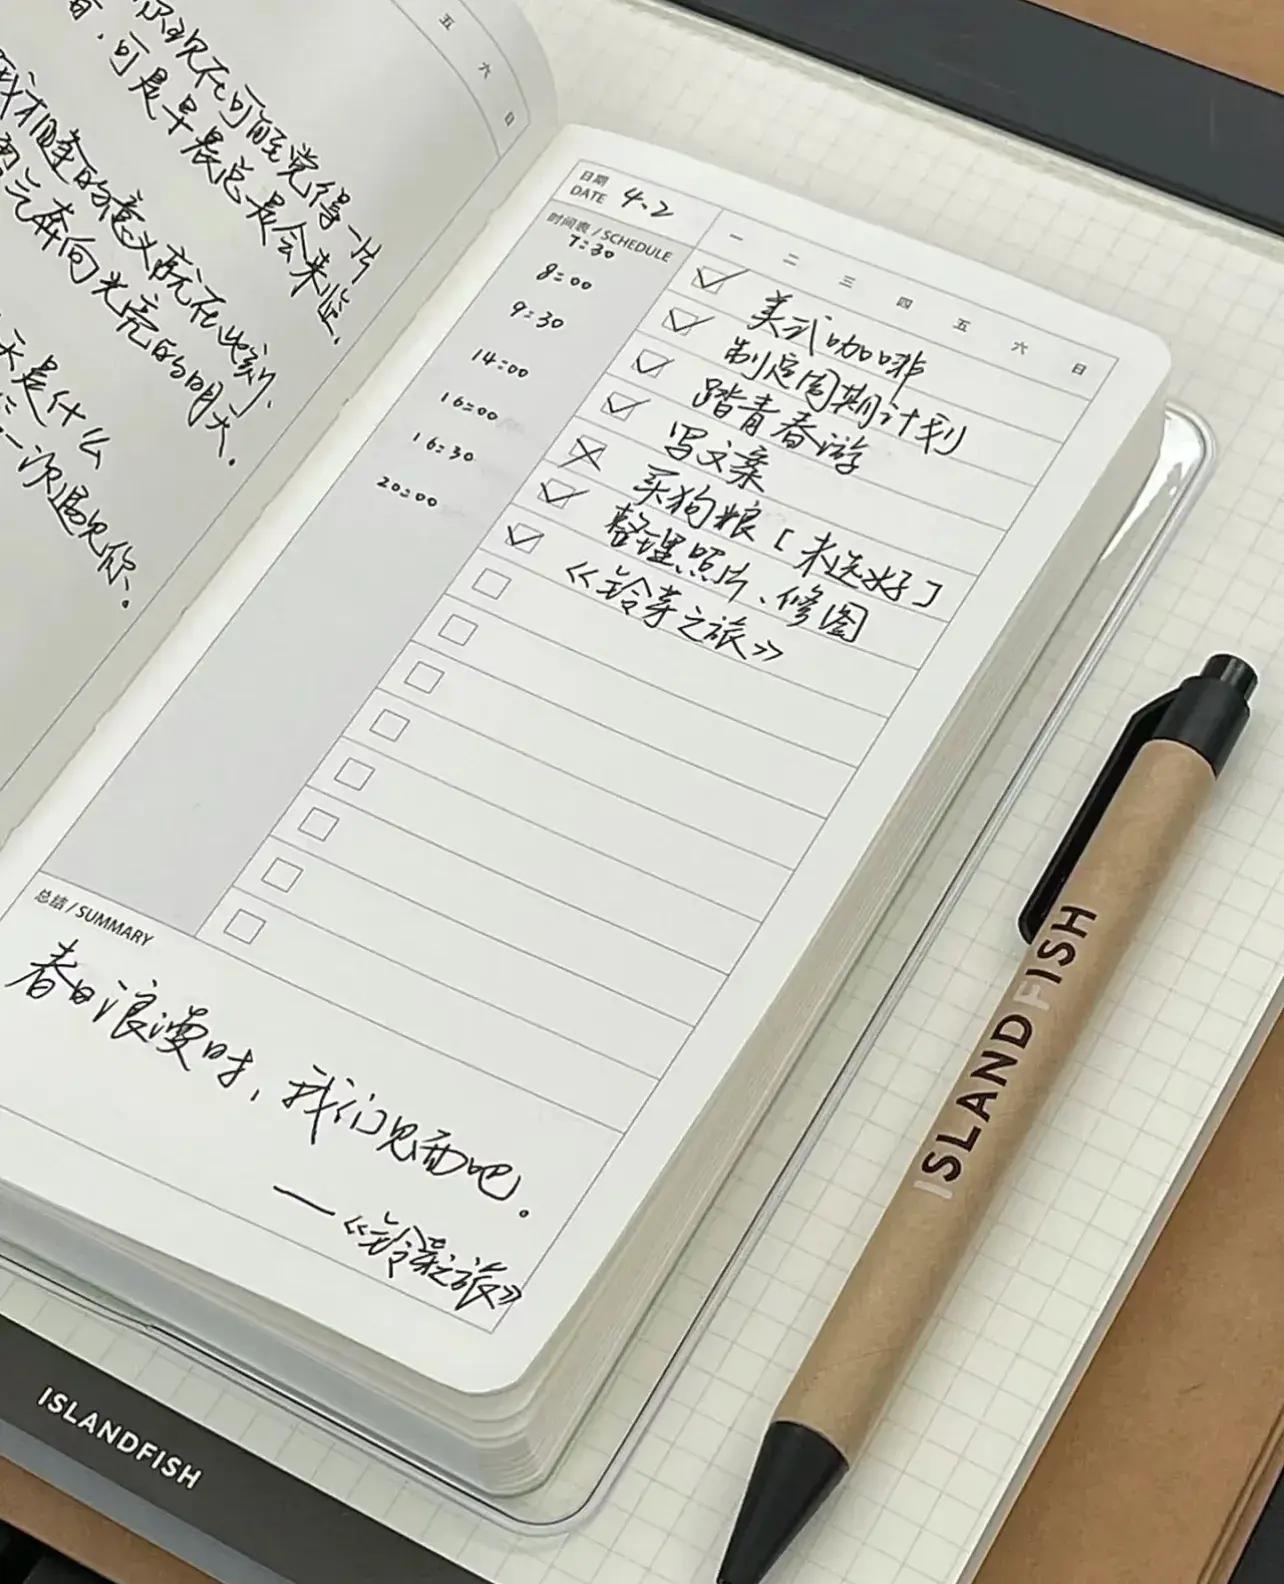 你现在可能觉得一片
，可是早晨总是会来临，
相逢的意义就在此刻，
奔向光亮的明天。
天是什么
一次遇见你。
五 六 日
日期
DATE 4.2
一 二 三 四 五 六 日
时间表 / SCHEDULE
7:30 美式咖啡
8:00 制定周期计划
9:30 踏青春游
14:00 写文案
16:00 买狗粮[未选好]
16:30 整理照片、修图
20:00 《铃芽之旅》
总结 / SUMMARY
春日浪漫时，我们见面吧。
——《铃芽之旅》
ISLANDFISH
ISLANDFISH